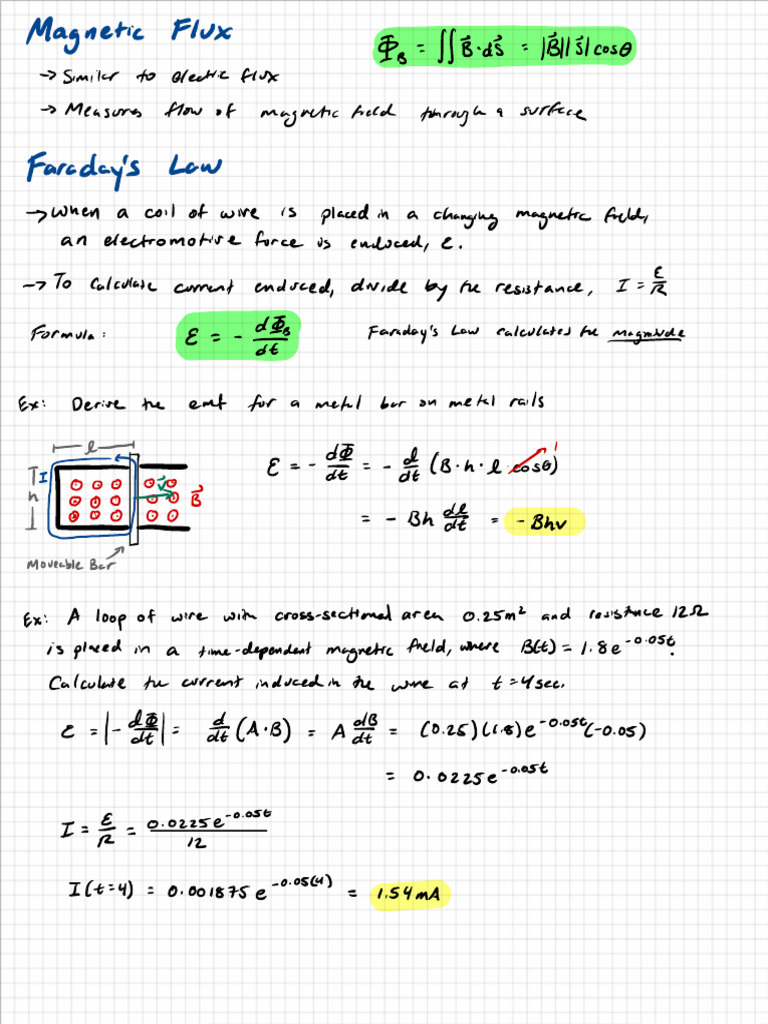 Magnetic Flux
Φ_B = ∬ B⃗·dS⃗ = |B⃗||S⃗|cosθ
→ Similar to electric flux
→ Measures flow of magnetic field through a surface
Faraday's Law
→ When a coil of wire is placed in a changing magnetic field,
an electromotive force is enduced, ε.
→ To calculate current enduced, divide by the resistance, I = ε/R
Formula: ε = - dΦ_B/dt Faraday's Law calculates the magnitude
Ex: Derive the emf for a metal bar on metal rails
l
I
h
v⃗
B⃗
Moveable Bar
ε = - dΦ/dt = - d/dt (B·h·l·cosθ) 1
= - Bh dl/dt = - Bhv
Ex: A loop of wire with cross-sectional area 0.25m² and resistance 12Ω
is placed in a time-dependent magnetic field, where B(t) = 1.8e^-0.05t.
Calculate the current induced in the wire at t=4sec.
ε = |- dΦ/dt| = d/dt (A·B) = A dB/dt = (0.25)(1.8)e^-0.05t (-0.05)
= 0.0225e^-0.05t
I = ε/R = 0.0225e^-0.05t/12
I(t=4) = 0.001875e^-0.05(4) = 1.54mA